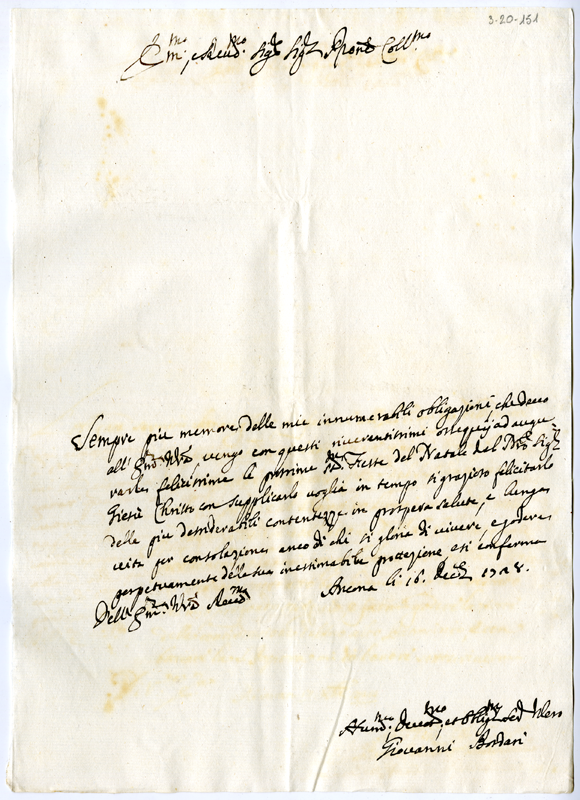 3-20-151
Em.mo e Reud.mo Sig.re Sig.r Pron.e Coll.mo
Sempre più memore delle mie innumerabili obligazioni, che deuo
all' Em.za V.ra vengo con questi riuerentissimi ossequij ad augu-
rarle felicissime le prossime S.me Feste del Natale del N.ro Sig.r
Giesù Christo con supplicarlo voglia in tempo sì grazioso felicitarlo
delle più desiderabili contentezze in prospera salute, e lunga
vita per consolazione anco di chi si gloria di viuere, e godere
perpetuamente della sua inestimabile protezione, e si conferma
Dell' Em.za V.ra Reud.ma Ancona li 16. Dec.re 1728.
Hum.mo Deuot.mo, et Oblig.mo Se.
Giovanni Bordari